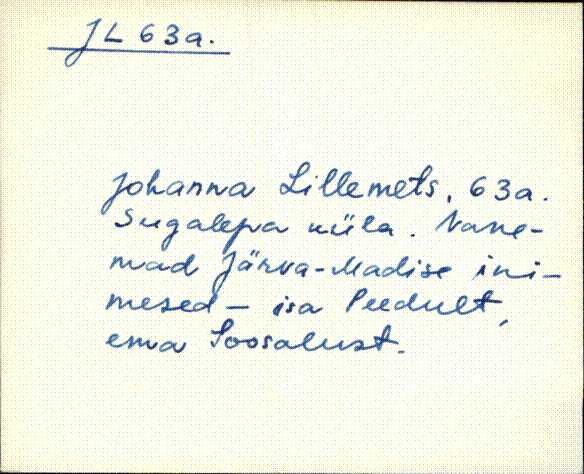 JL 63a.
Johanna Lillemets, 63a.
Sugalepa küla. Vane-
mad Järva-Madise ini-
mesed – isa Peedult,
ema Soosalust.